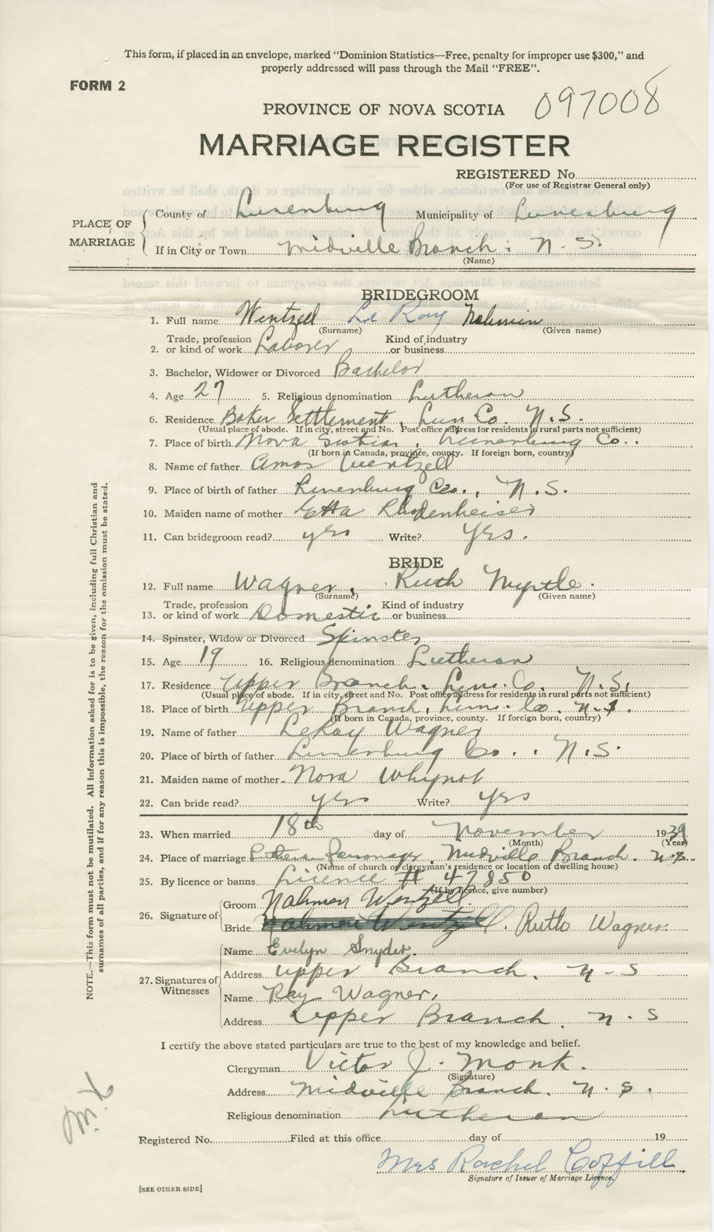 This form, if placed in an envelope, marked "Dominion Statistics—Free, penalty for improper use $300," and
properly addressed will pass through the Mail "FREE".
FORM 2
097008
PROVINCE OF NOVA SCOTIA
MARRIAGE REGISTER
REGISTERED No.
(For use of Registrar General only)
PLACE OF MARRIAGE
County of Lunenburg Municipality of Lunenburg
If in City or Town Midville Branch. N. S.
(Name)
BRIDEGROOM
1. Full name Wentzell Le Roy Nahmen
(Surname) (Given name)
2. Trade, profession or kind of work Laborer Kind of industry or business
3. Bachelor, Widower or Divorced Bachelor
4. Age 27 5. Religious denomination Lutheran
6. Residence Baker Settlement, Lun Co. N. S.
(Usual place of abode. If in city, street and No. Post office address for residents in rural parts not sufficient)
7. Place of birth Nova Scotia, Lunenburg Co..
(If born in Canada, province, county. If foreign born, country)
8. Name of father Amos Wentzell
9. Place of birth of father Lunenburg Co., N. S.
10. Maiden name of mother Etta Rhodenheiser
11. Can bridegroom read? yes Write? Yes.
BRIDE
12. Full name Wagner, Ruth Myrtle.
(Surname) (Given name)
13. Trade, profession or kind of work Domestic Kind of industry or business
14. Spinster, Widow or Divorced Spinster
15. Age 19 16. Religious denomination Lutheran
17. Residence Upper Branch. Lun. Co. N. S.
(Usual place of abode. If in city, street and No. Post office address for residents in rural parts not sufficient)
18. Place of birth Upper Branch, Lun. Co. N. S
(If born in Canada, province, county. If foreign born, country)
19. Name of father LeRoy Wagner
20. Place of birth of father Lunenburg Co. . N. S.
21. Maiden name of mother Nora Whynot
22. Can bride read? yes Write? Yes
23. When married 18th day of November 1939
(Month) (Year)
24. Place of marriage Lutheran Parsonage, Midville Branch. N. S.
(Name of church or clergyman's residence or location of dwelling house)
25. By licence or banns Licence # 47850
(If by licence, give number)
26. Signature of
Groom Nahmen Wentzell.
Bride Nahmen Wentzell. Ruth Wagner.
27. Signatures of Witnesses
Name Evelyn Snyder.
Address Upper Branch. N - S
Name Ray Wagner,
Address Upper Branch. N. S
I certify the above stated particulars are true to the best of my knowledge and belief.
Clergyman Victor J. Monk.
(Signature)
Address Midville Branch. N. S.
Religious denomination Lutheran
Registered No. Filed at this office day of 19
Mrs Rachel Coffill
Signature of Issuer of Marriage Licence.
[SEE OTHER SIDE]
NOTE.—This form must not be mutilated. All information asked for is to be given, including full Christian and
surnames of all parties, and if for any reason this is impossible, the reason for the omission must be stated.